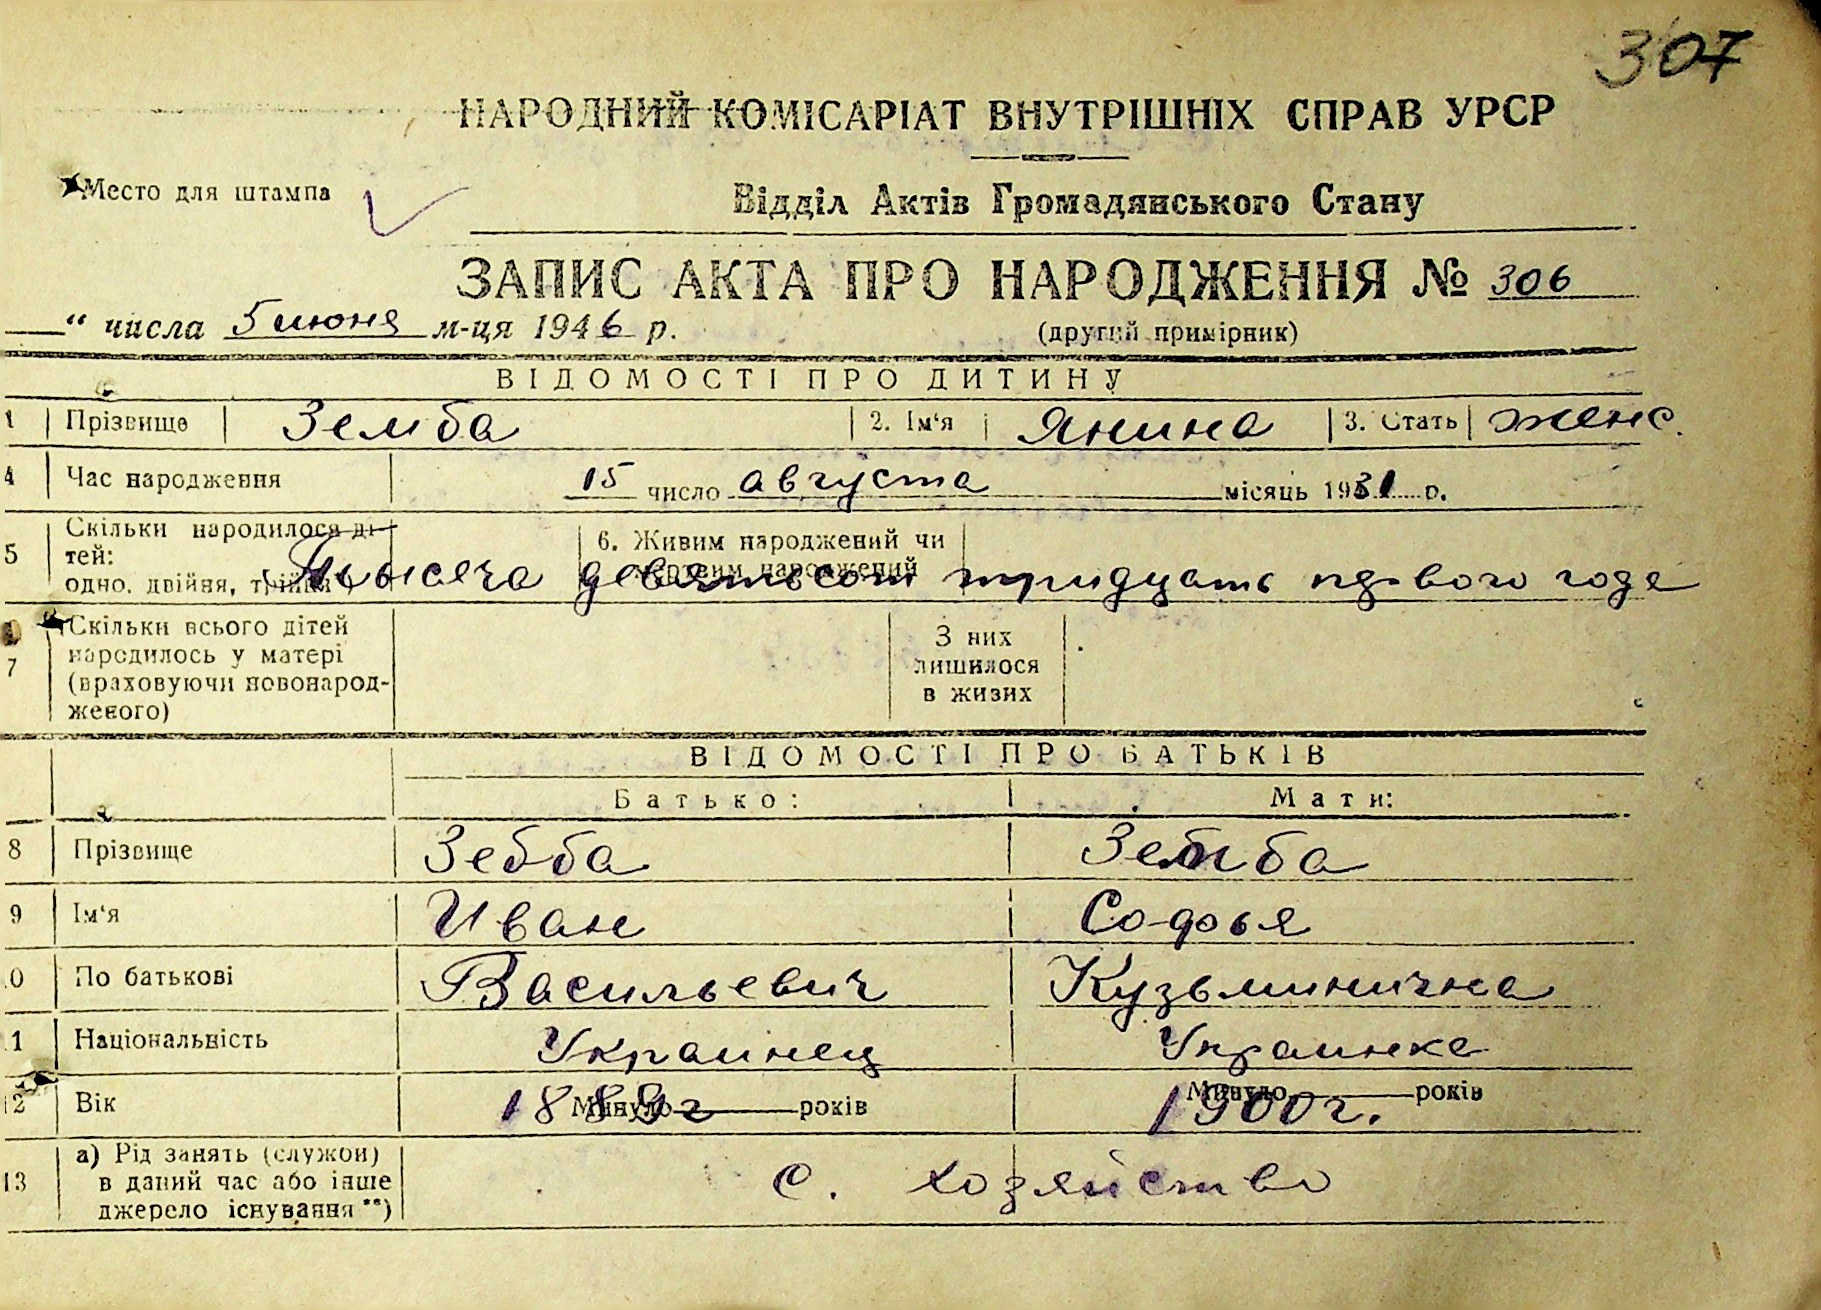 307
НАРОДНИЙ КОМІСАРІАТ ВНУТРІШНІХ СПРАВ УРСР
Место для штампа
Відділ Актів Громадянського Стану
ЗАПИС АКТА ПРО НАРОДЖЕННЯ № 306
“ числа 5 июня м-ця 1946 р.
(другий примірник)
ВІДОМОСТІ ПРО ДИТИНУ
1 Прізвище Земба 2. Ім‘я Янина 3. Стать женс.
4 Час народження 15 число августа місяць 1931 р.
5 Скільки народилося ді-
тей:
одно, двійня, трійня
6. Живим народжений чи
мертвим народжений
Тысяча девятьсот тридцать первого года
7 Скільки всього дітей
народилось у матері
(враховуючи новонарод-
женого)
З них
лишилося
в живих
ВІДОМОСТІ ПРО БАТЬКІВ
Батько: Мати:
8 Прізвище Зебба Земба
9 Ім‘я Иван Софья
0 По батькові Васильевич Кузьминична
1 Національність Украинец Украинка
12 Вік Минуло 1889 г років Минуло 1900 г. років
13 а) Рід занять (служби)
в даний час або інше
джерело існування **)
С. хозяйство